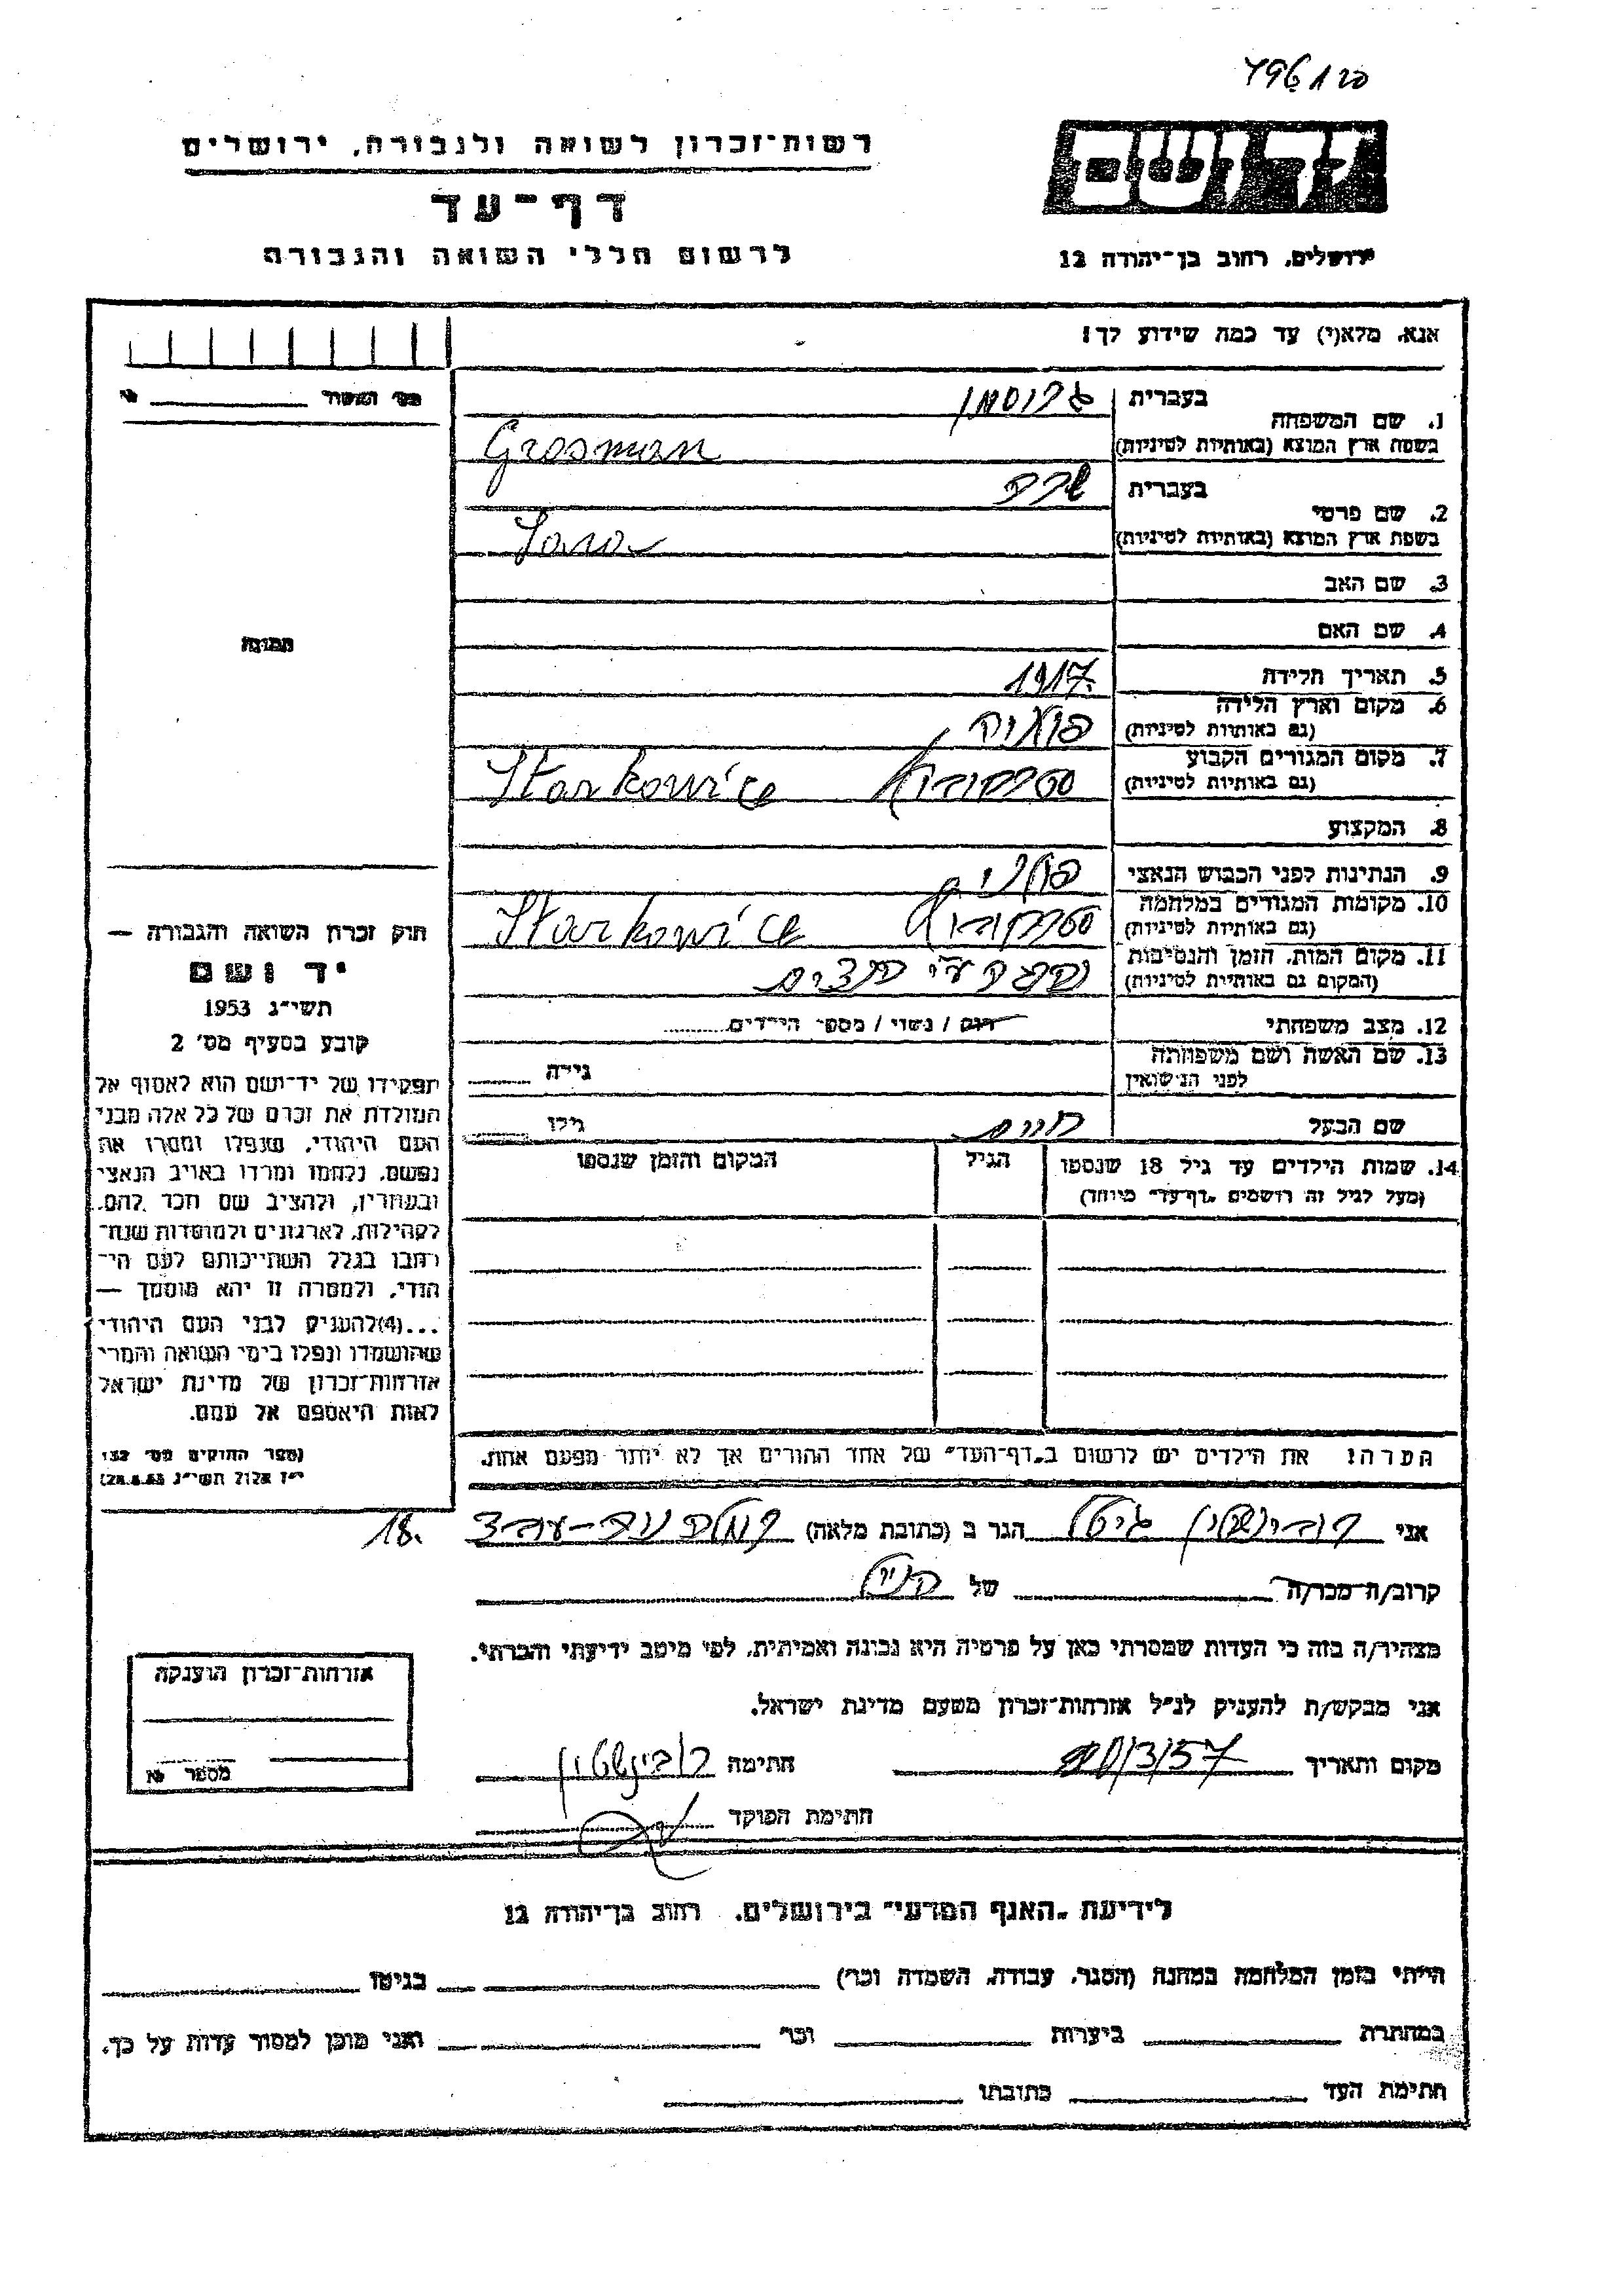 796 1 20
רשות-זכרון לשואה ולגבורה, ירושלים
דף-עד
לרשום חללי השואה והגבורה
ידושם
ירושלים, רחוב בן-יהודה 12
אנא, מלא(י) עד כמה שידוע לך!
1. שם המשפחה בעברית גרוסמן
בשפת ארץ המוצא (באותיות לטיניות) Grosman
2. שם פרטי בעברית שרה
בשפת ארץ המוצא (באותיות לטיניות) Sara
3. שם האב
4. שם האם
5. תאריך הלידה 1917.
6. מקום וארץ הלידה
(גם באותיות לטיניות)
7. מקום המגורים הקבוע
(גם באותיות לטיניות) Starkowice
8. המקצוע
9. הנתינות לפני הכבוש הנאצי פולנית
10. מקומות המגורים במלחמה
(גם באותיות לטיניות) Starkowice
11. מקום המות, הזמן והנסיבות
(המקום גם באותיות לטיניות) נהרגה ע"י הנצים
12. מצב משפחתי רווק / נשוי / מספר הילדים
13. שם האשה ושם משפחתה
לפני הנישואין גילה
שם הבעל חיים גילו
14. שמות הילדים עד גיל 18 שנספו הגיל המקום והזמן שנספו
(מעל לגיל זה רושמים „דף-עד" מיוחד)
הערה! את הילדים יש לרשום ב„דף-העד" של אחד ההורים אך לא יותר מפעם אחת.
מס' האשור №
תמונה
חוק זכרון השואה והגבורה —
יד ושם
תשי"ג 1953
קובע בסעיף מס' 2
תפקידו של יד-ושם הוא לאסוף אל
המולדת את זכרם של כל אלה מבני
העם היהודי, שנפלו ומסרו את
נפשם, נלחמו ומרדו באויב הנאצי
ובעוזריו, ולהציב שם וזכר להם,
לקהילות, לארגונים ולמוסדות שנח-
רבו בגלל השתייכותם לעם הי-
הודי, ולמטרה זו יהא מוסמך —
...(4)להעניק לבני העם היהודי
שהושמדו ונפלו בימי השואה והמרי
אזרחות-זכרון של מדינת ישראל
לאות היאספם אל עמם.
(ספר החוקים מס' 132
י"ז אלול תשי"ג 28.8.53)
אני רובינשטיין גיטל הגר ב (כתובת מלאה) 18.
קרוב/ה מכר/ה של
מצהיר/ה בזה כי העדות שמסרתי כאן על פרטיה היא נכונה ואמיתית, לפי מיטב ידיעתי והכרתי.
אני מבקש/ת להעניק לנ"ל אזרחות-זכרון מטעם מדינת ישראל.
מקום ותאריך חתימה רובינשטיין
חתימת הפוקד
אזרחות-זכרון הוענקה
מספר №
לידיעת „האגף המדעי" בירושלים, רחוב בן-יהודה 12
הייתי בזמן המלחמה במחנה (הסגר, עבודה, השמדה וכו') בגיטו
במחתרת ביערות וכו' ואני מוכן למסור עדות על כך.
חתימת העד כתובתו